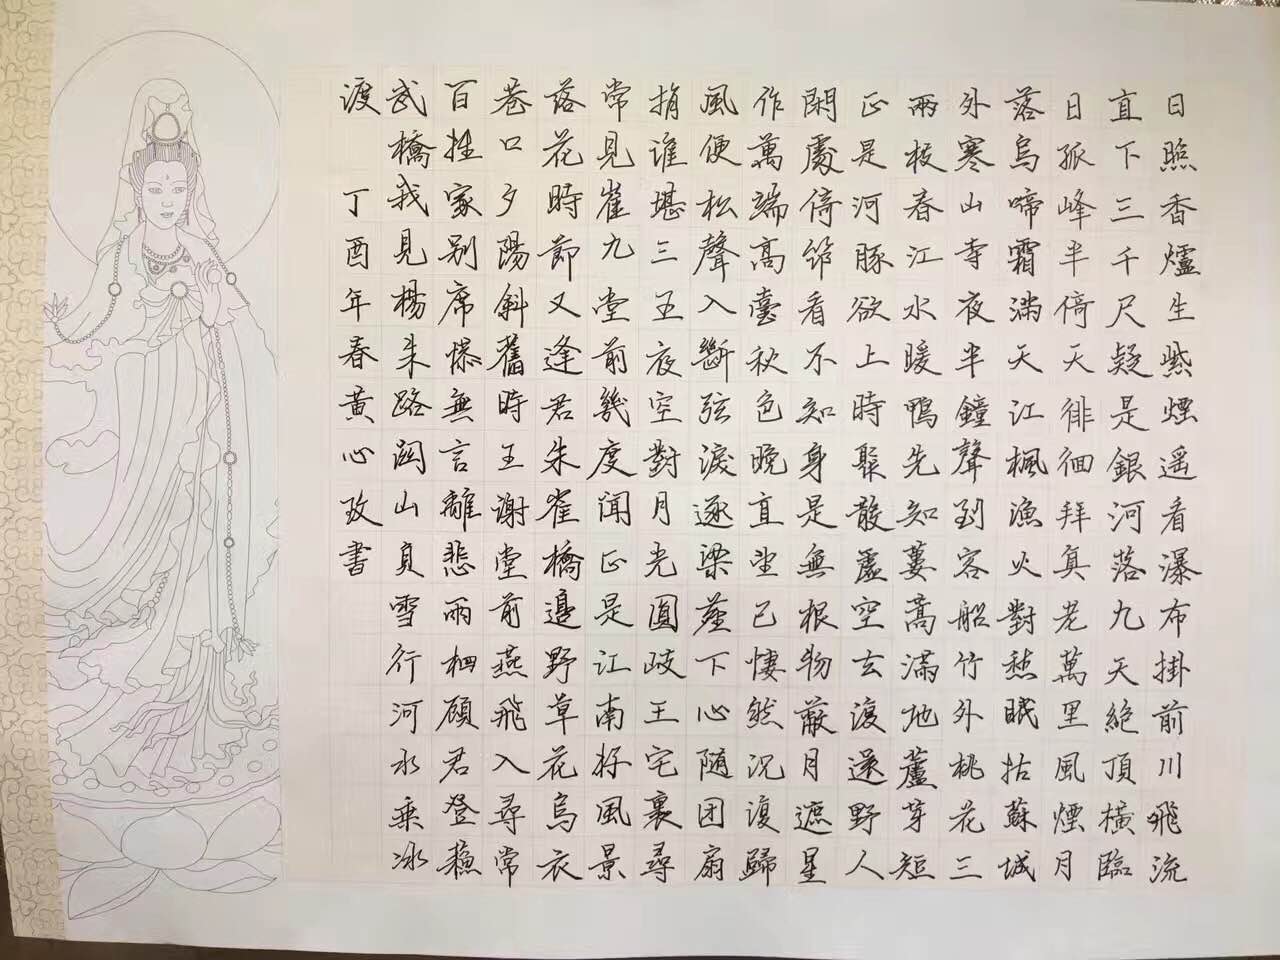 日照香爐生紫煙遥看瀑布掛前川飛流
直下三千尺疑是銀河落九天絕頂橫臨
日孤峰半倚天徘徊拜真老萬里風煙月
落烏啼霜滿天江楓漁火對愁眠姑蘇城
外寒山寺夜半鐘聲到客船竹外桃花三
兩枝春江水暖鴨先知蔞蒿滿地蘆芽短
正是河豚欲上時聚散虛空去復還野人
閑處倚筇看不知身是無根物蔽月遮星
作萬端高臺秋色晚直望已悽然況復歸
風便松聲入斷弦淚逐梁塵下心隨团扇
捐谁堪三五夜空對月光圓岐王宅裏尋
常見崔九堂前幾度闻正是江南好風景
落花時節又逢君朱雀橋邊野草花烏衣
巷口夕陽斜舊時王謝堂前燕飛入尋常
百姓家别席慘無言離悲雨相顧君登蘇
武橋我見楊朱路關山負雪行河水乘冰
渡 丁酉年春黃心孜書